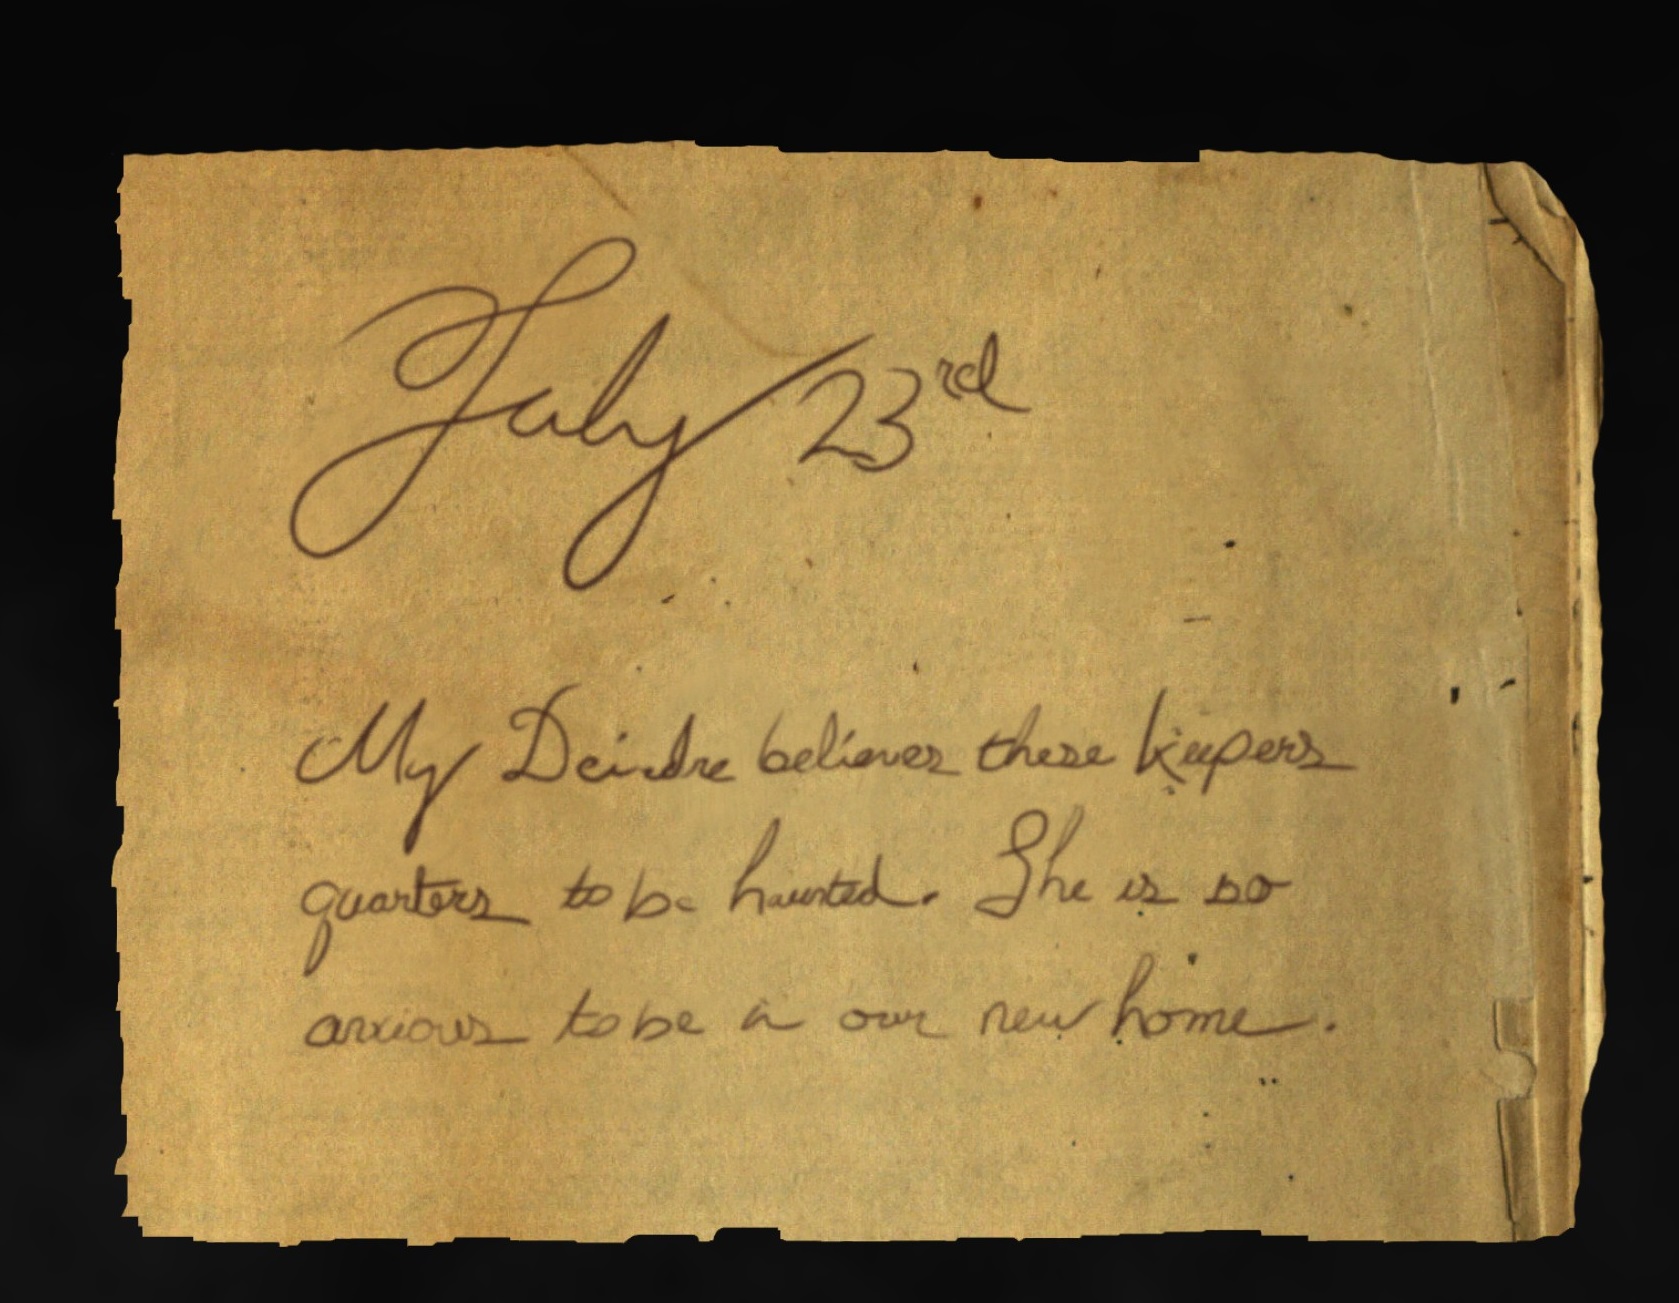 July 23rd
My Deirdre believes these keepers
quarters to be haunted. She is so
anxious to be in our new home.